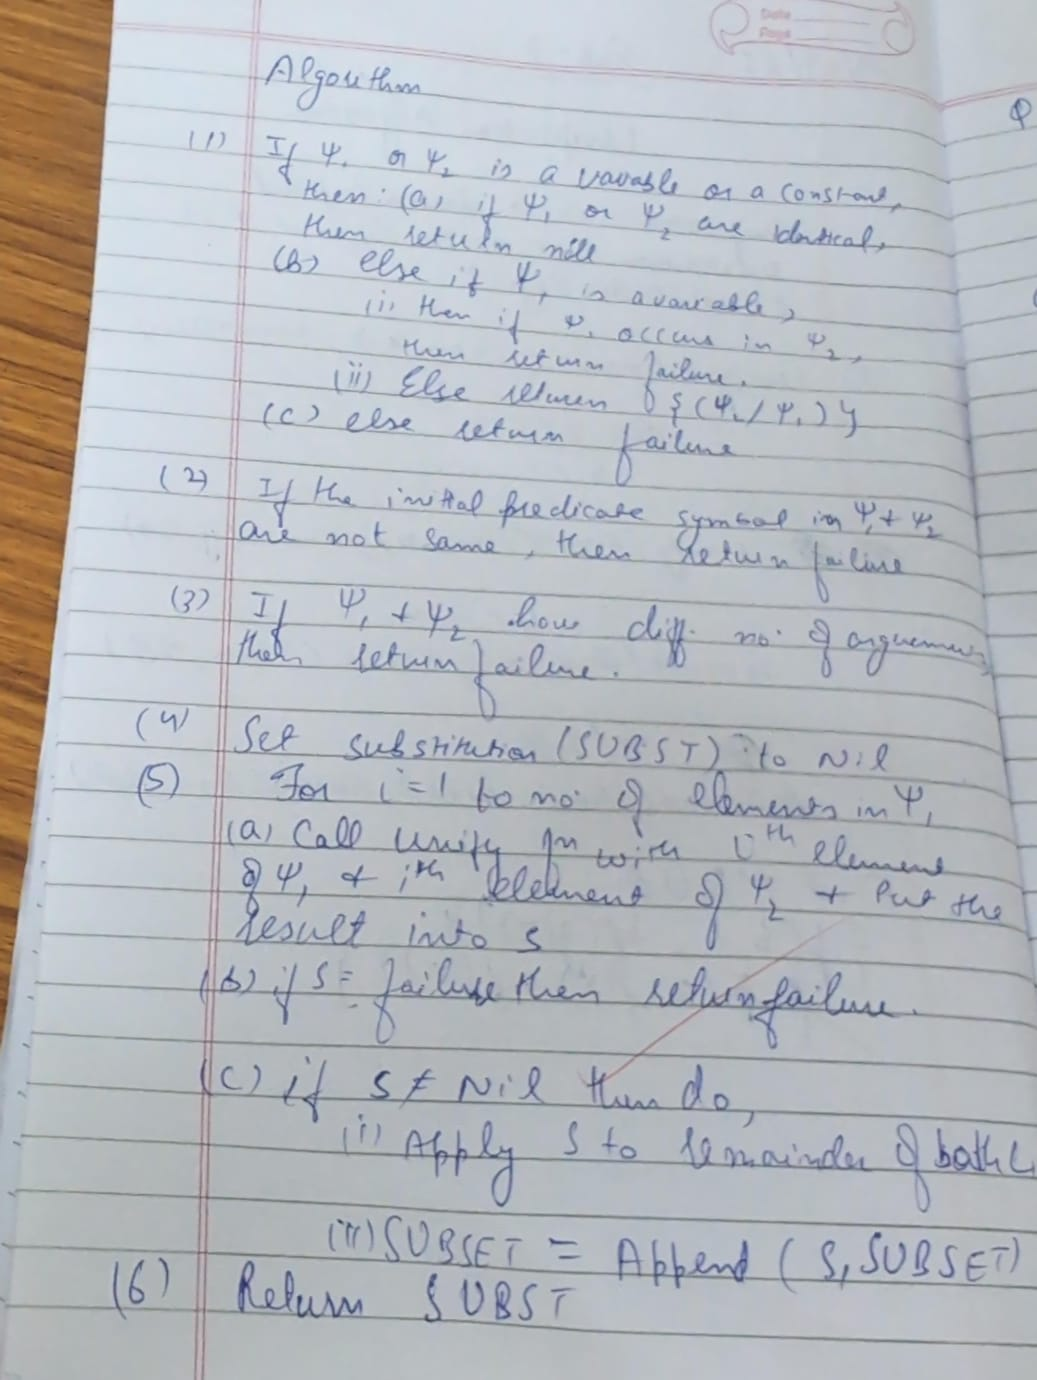 Date
Page
Algorithm
(1) If Ψ₁ or Ψ₂ is a variable or a constant,
then: (a) if Ψ₁ or Ψ₂ are identical,
then return nill
(b) else if Ψ₁ is a variable,
(i) then if Ψ₁ occurs in Ψ₂,
then return failure.
(ii) Else return {(Ψ₂/Ψ₁)}
(c) else return failure
(2) If the initial predicate symbol in Ψ₁ + Ψ₂
are not same, then return failure
(3) If Ψ₁ + Ψ₂ have diff. no. of arguements
then return failure.
(4) Set substitution (SUBST) to Nil
(5) For i=1 to no. of elements in Ψ₁
(a) Call unify fn with ith element
of Ψ₁ & ith element of Ψ₂ + Put the
result into S
(b) if S = failure then return failure.
(c) if S ≠ Nil then do,
(i) Apply S to remainder of both L
(ii) SUBSET = Append (S, SUBSET)
(6) Return SUBST